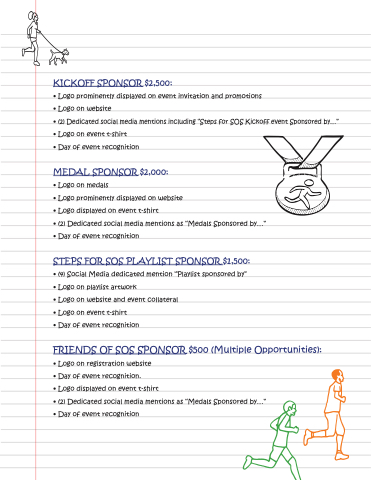 KICKOFF SPONSOR $2,500:
• Logo prominently displayed on event invitation and promotions
• Logo on website
• (2) Dedicated social media mentions including "Steps for SOS Kickoff event Sponsored by..."
• Logo on event t-shirt
• Day of event recognition
MEDAL SPONSOR $2,000:
• Logo on medals
• Logo prominently displayed on website
• Logo displayed on event t-shirt
• (2) Dedicated social media mentions as "Medals Sponsored by..."
• Day of event recognition
STEPS FOR SOS PLAYLIST SPONSOR $1,500:
• (4) Social Media dedicated mention "Playlist sponsored by"
• Logo on playlist artwork
• Logo on website and event collateral
• Logo on event t-shirt
• Day of event recognition
FRIENDS OF SOS SPONSOR $500 (Multiple Opportunities):
• Logo on registration website
• Day of event recognition.
• Logo displayed on event t-shirt
• (2) Dedicated social media mentions as "Medals Sponsored by..."
• Day of event recognition